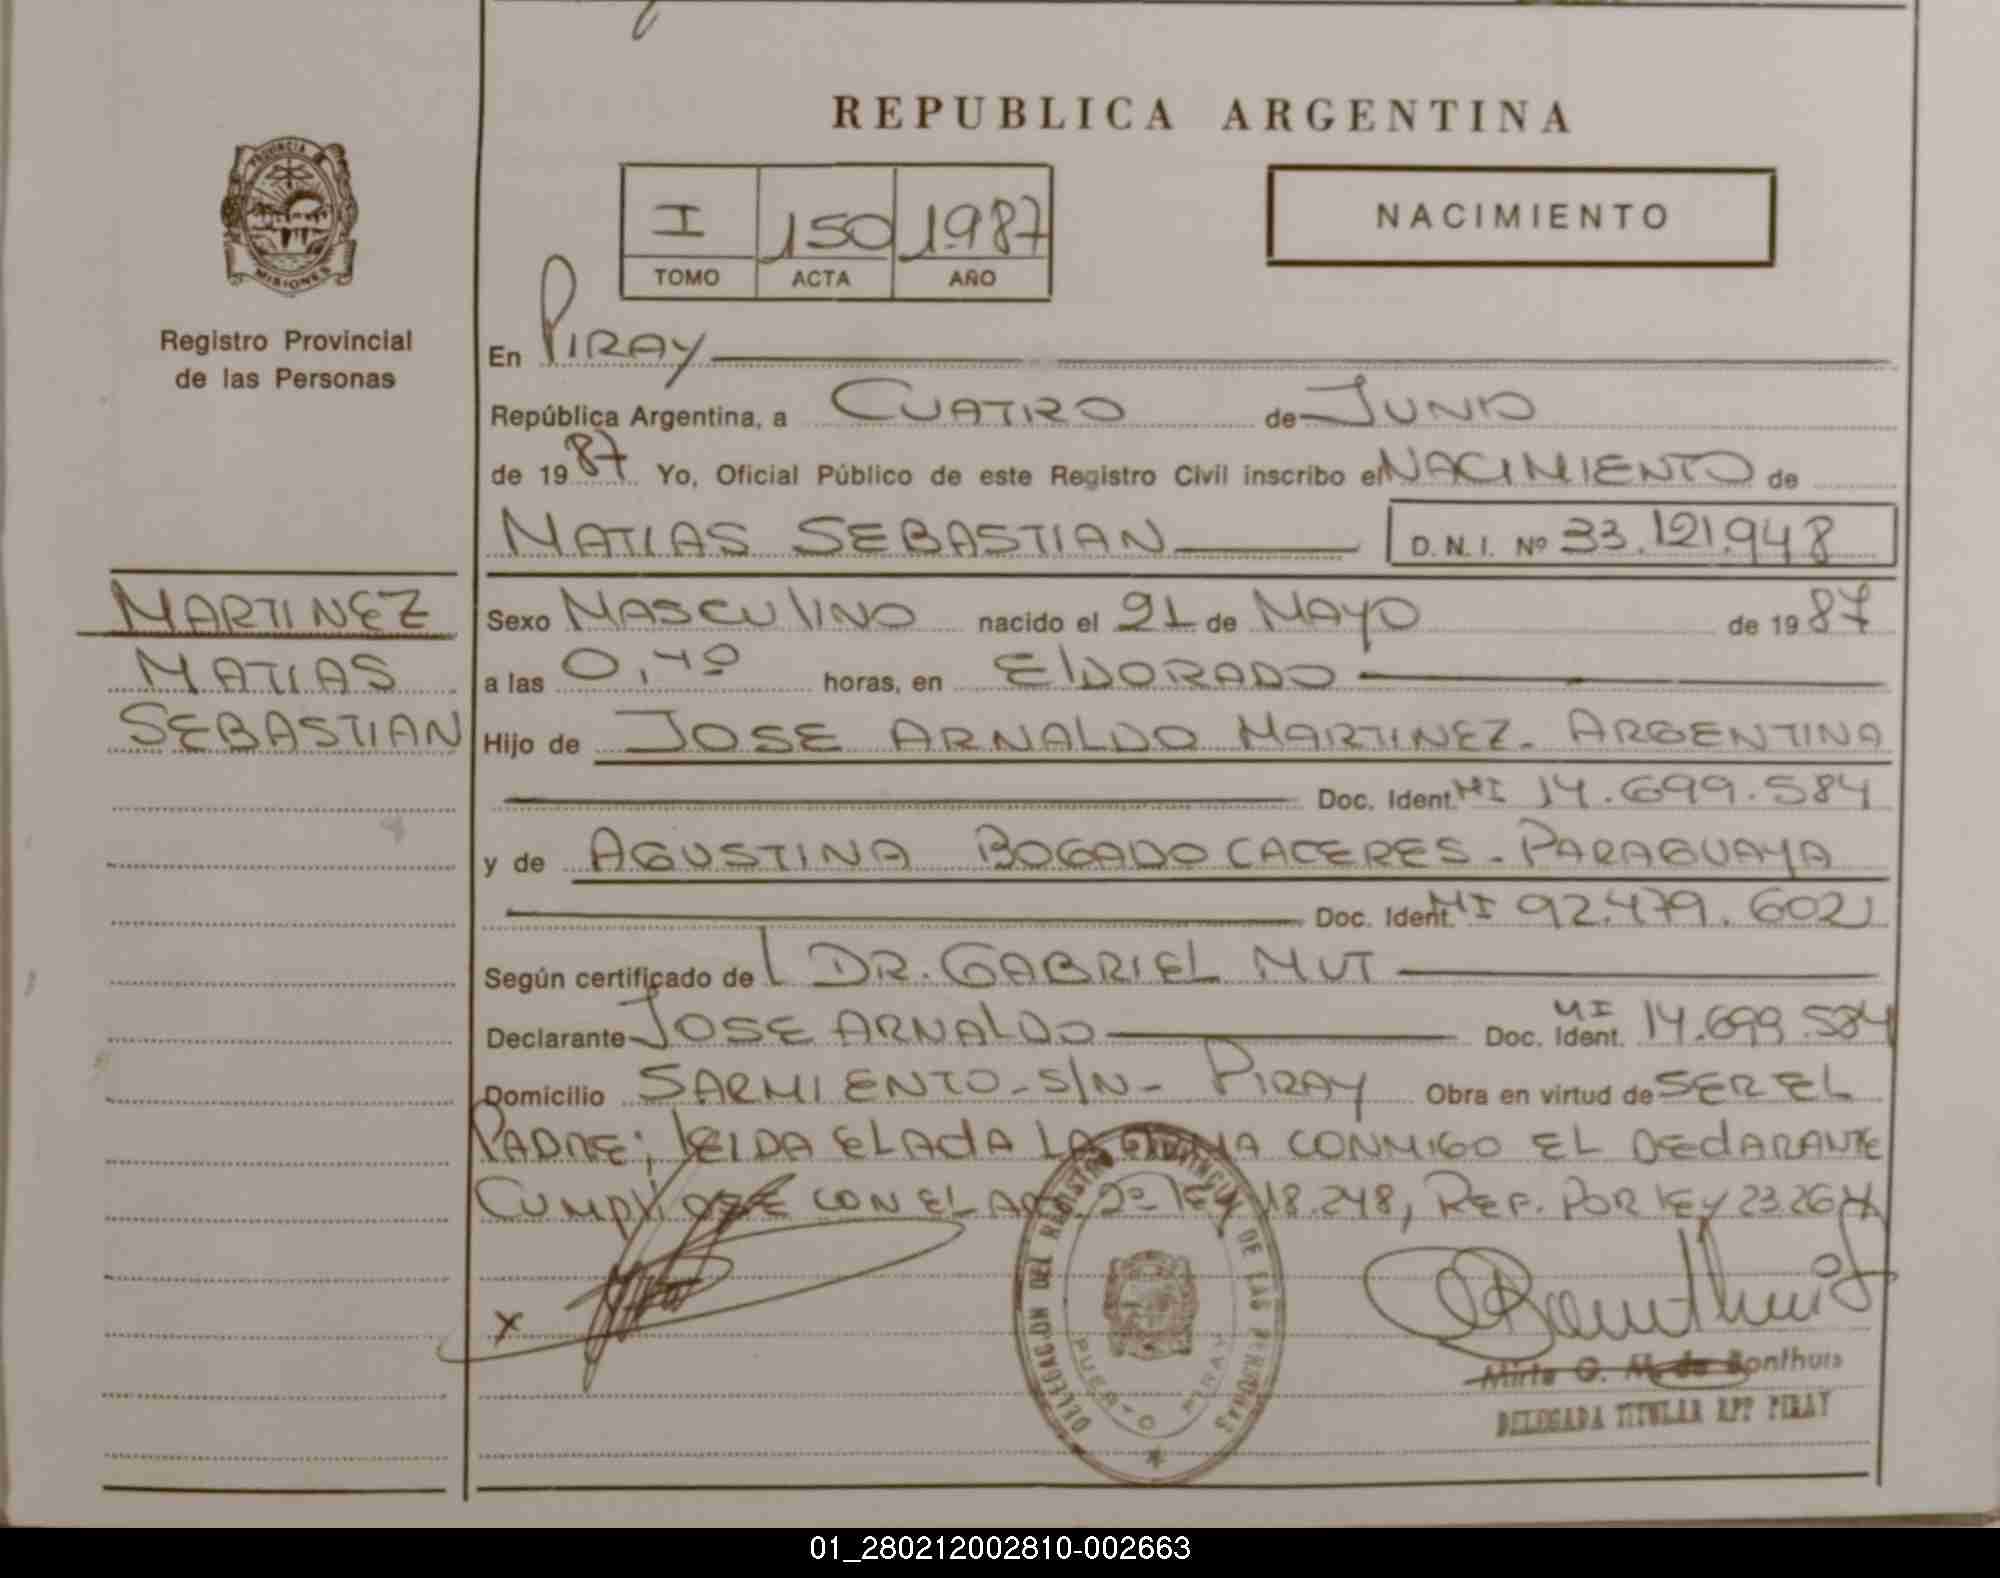 REPUBLICA ARGENTINA
PROVINCIA DE
MISIONES
Registro Provincial
de las Personas
I 150 1987
TOMO ACTA AÑO
NACIMIENTO
En PIRAY
República Argentina, a CUATRO de JUNIO
de 1987 Yo, Oficial Público de este Registro Civil inscribo el NACIMIENTO de
MATIAS SEBASTIAN D.N.I. Nº 33.121.948
MARTINEZ
MATIAS
SEBASTIAN
Sexo MASCULINO nacido el 21 de MAYO de 1987
a las 0,40 horas, en ElDORADO
Hijo de JOSE ARNALDO MARTINEZ. ARGENTINA
Doc. Ident. MI 14.699.584
y de AGUSTINA BOGADO CACERES. PARAGUAYA
Doc. Ident. MI 92.479.602
Según certificado de DR. GABRIEL MUT
Declarante JOSE ARNALDO Doc. Ident. MI 14.699.584
Domicilio SARMIENTO-S/N- PIRAY Obra en virtud de SER EL
PADRE; lEIDA El ActA LA FIRMA CONMIGO EL DEclARANTE
CUMPliOSE CON EL ART. 2º lEY 18.248, REF. POR lEY 23.264
X
DELEGACION DEL REGISTRO PROVINCIAL DE LAS PERSONAS
PUERTO PIRAY
Mirta G. M. de Bonthuis
DELEGADA TITULAR RPP PIRAY
01_280212002810-002663